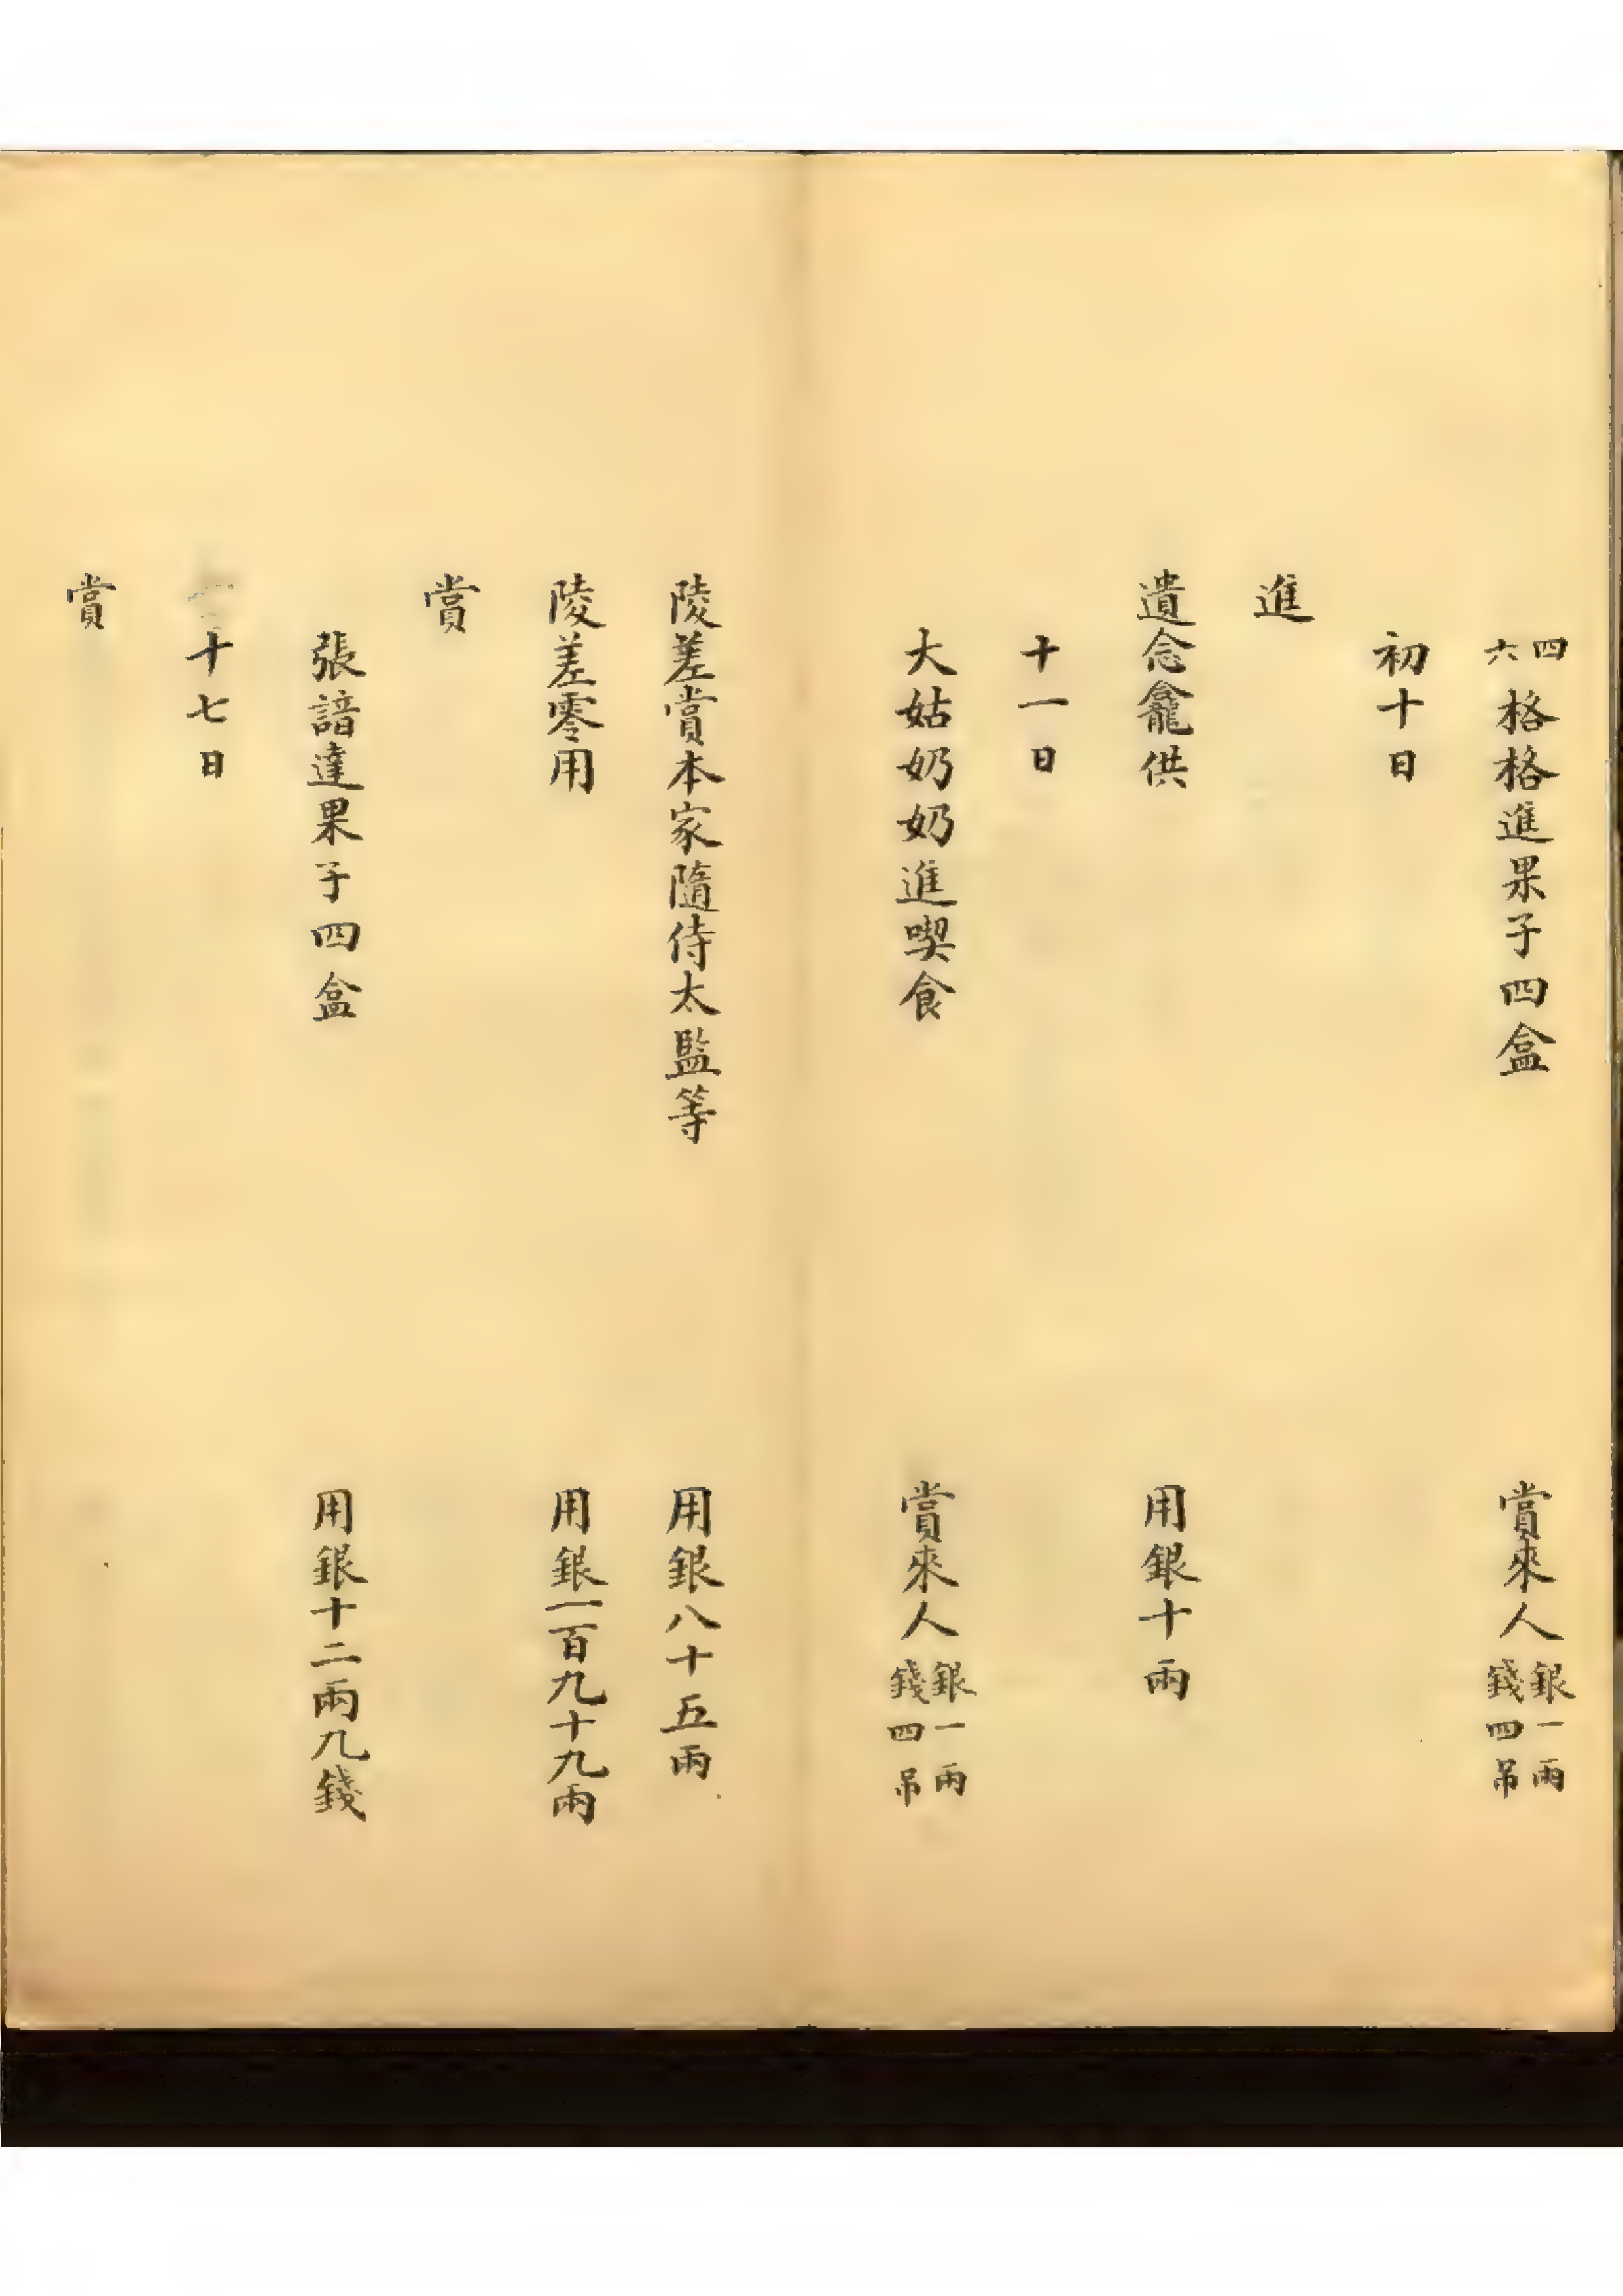 四六格格進果子四盒 賞來人銀一兩錢四吊
初十日
進
遺念龕供 用銀十兩
十一日
大姑奶奶進喫食 賞來人銀一兩錢四吊
陵差賞本家隨侍太監等 用銀八十五兩
陵差零用 用銀一百九十九兩
賞
張諳達果子四盒 用銀十二兩九錢
十七日
賞